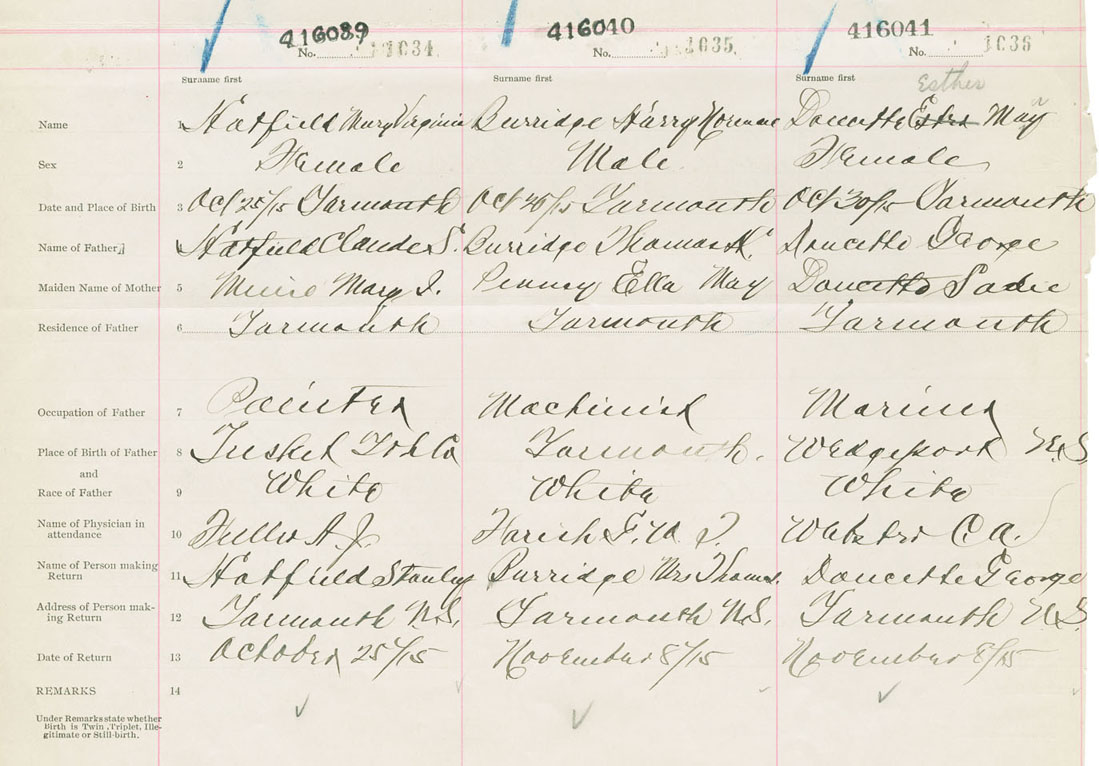 416089 416040 416041
No. 1034 No. 1035 No. 1036
Surname first Surname first Surname first
Esther
Name 1 Hatfield Mary Virginia Burridge Harry Norman Doucette Estra May
Sex 2 Female Male Female
Date and Place of Birth 3 Oct 25/15 Yarmouth Oct /15 Yarmouth Oct 30/15 Yarmouth
Name of Father 4 Hatfield Claude S. Burridge Thomas H. Doucette George
Maiden Name of Mother 5 Mary J. Penney Ella May Doucette Sadie
Residence of Father 6 Yarmouth Yarmouth Yarmouth
Occupation of Father 7 Painter Machinist Mariner
Place of Birth of Father 8 Tusket Yarmouth. Wedgeport N.S.
and
Race of Father 9 White White White
Name of Physician in
attendance 10 Fuller A.J. Farish Webster C.A.
Name of Person making
Return 11 Hatfield Stanley Burridge Mrs Thomas. Doucette George
Address of Person mak-
ing Return 12 Yarmouth N.S. Yarmouth N.S. Yarmouth N.S.
Date of Return 13 October 25/15 November 8/15 November 8/15
REMARKS 14
Under Remarks state whether
Birth is Twin, Triplet, Ille-
gitimate or Still-birth.